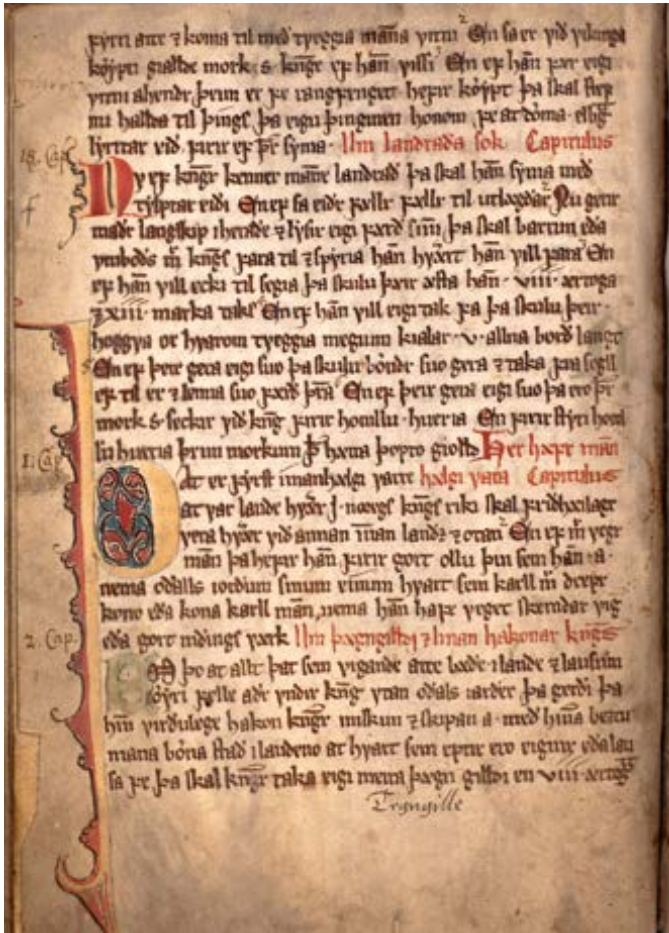 fyrri atte ⁊ koma til med tveggia manna vitni En sa er vid vikinga
køypti giallde mork s kngr ef han villi En ef han fær eigi
vitni a hendr þeim er fe rangfenget hefir køypt þa skal stef
nu hallda til þings þa eigu þingmen honom fe at dôma
lyrittar vid firir ef þr syniа Um landrada sok Capitulus
18. Cap
Nv ef kngr kenner manne landrad þa skal han synia med
tylptar eidi En ef sa eidr fellr fellr til utlegdar Nu gerir
f
madr langskip i herade ⁊ lysir eigi færd sinni þa skal barrun eda
vmbods m kngs fara til ⁊ spyria han hvært han vill fara En
ef han vill ecki til segia þa skulu þeir æsta han viii ærtoga
⁊ xiii marka taks En ef han vill eigi tak fa þa skulu þeir
hoggva or hvarom tveggia megum kialar v allna bord langt
En ef þeir gera eigi suo þa skulu bôndr suo gera ⁊ taka fra segll
ef til er ⁊ lemia suo færd þra En ef þeir gera eigi suo þa ero þr
mork s seckir vid kng firir homllu hueria En firir styri homl
lu hueria þrim morkum Her hæfr man
1. Cap
Þat er fyrst i manhælgi varre hælgi vara Capitulus
at var lande hvær i noregs kngs riki skal fridhæilagr
vera hvær vid annan innan landz ⁊ otan En ef m vegr
man þa hefir han firir gort ollu þui sem han a
nema odalls iordum sinum einum hvart sem karll m drepr
kono eda kona karll man nema han hafe veget skemdar vig
2. Cap.
eda gort nidings værk Um þægngilldi ⁊ linan hakonar kngs
En þo at allt þat sem vigande atte bæde i lande ⁊ lausum
øyri felle adr vndir kng vtan odals iarder þa gerdi þa
hin virdulege hakon kngr miskun ⁊ skipan a med hinna bezstu
manna bôna stad i landeno at hvart sem eptir ero eignir eda lau
sa fe þa skal kngr taka eigi meira þægn gilldi en viii ærtog